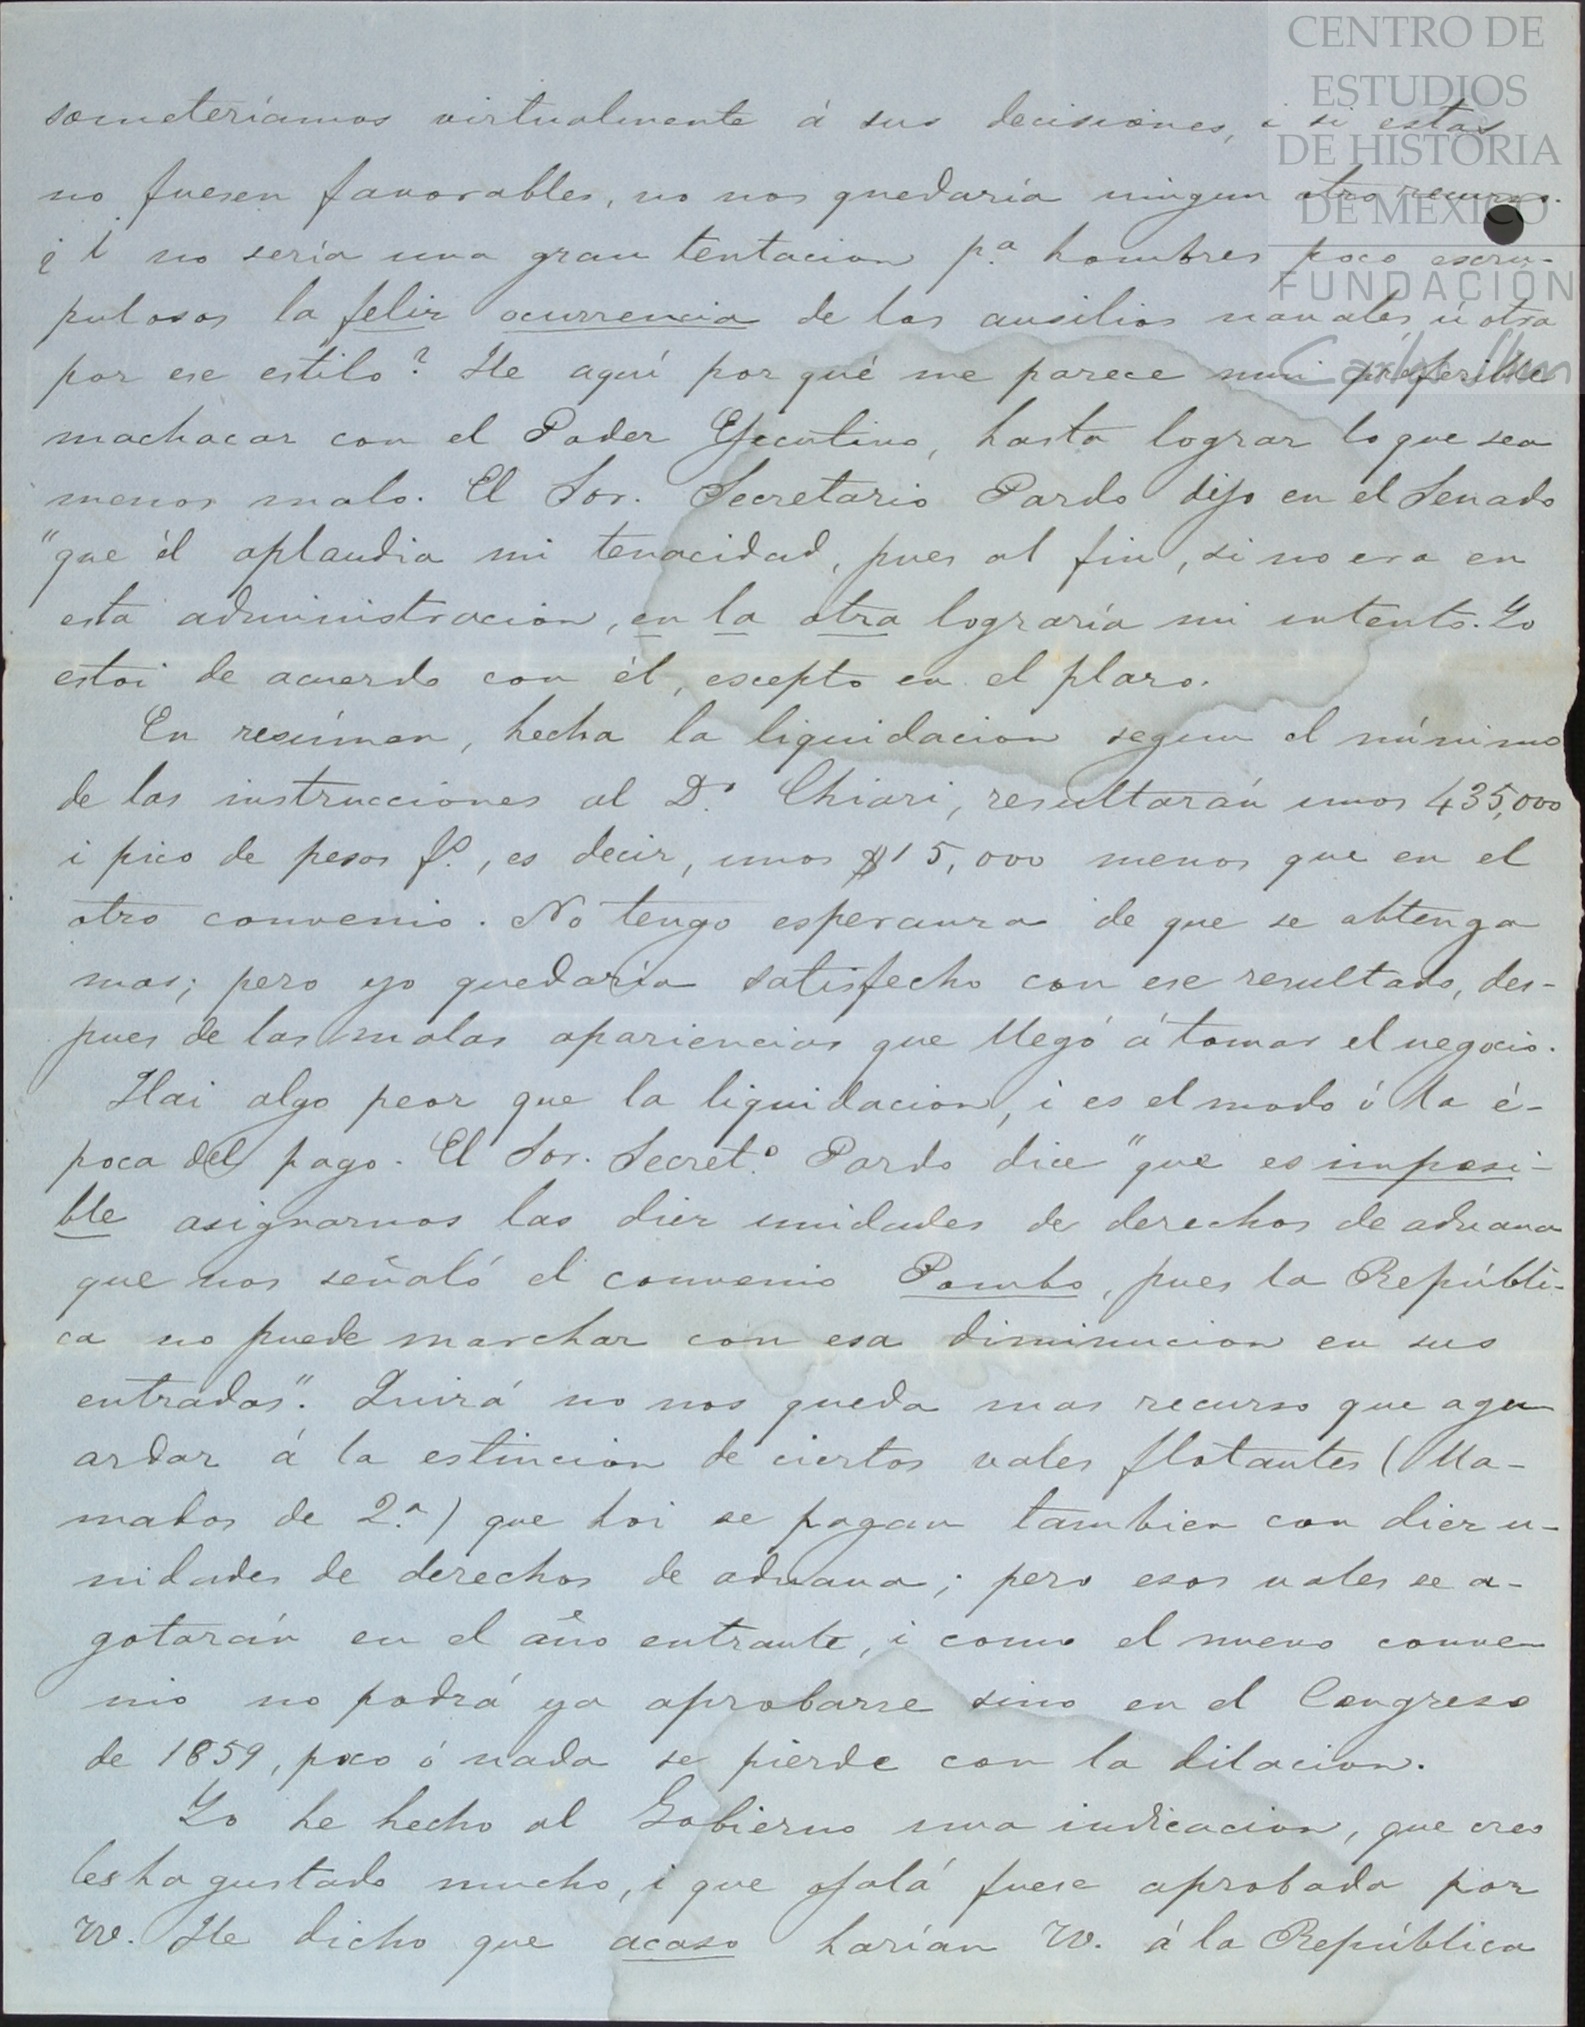 CENTRO DE
ESTUDIOS
DE HISTORIA
DE MEXICO
FUNDACIÓN
Carlos Slim
someteríamos virtualmente á sus decisiones, i si estas
no fuesen favorables, no nos quedaría ningun otro recurso.
¿ I no sería una gran tentacion p.ª hombres poco escru-
pulosos la feliz ocurrencia de los ausilios navales ú otra
por ese estilo? He aquí por qué me parece mui preferible
machacar con el Poder Ejecutivo, hasta lograr lo que sea
menos malo. El Sor. Secretario Pardo dijo en el Senado
"que él aplaudia mi tenacidad, pues al fin, si no era en
esta administracion, en la otra lograría mi intento. Yo
estoi de acuerdo con él, escepto en el plazo.
En resúmen, hecha la liquidacion segun el mínimo
de las instrucciones al D.r Chiari, resultarán unos 435,000
i pico de pesos f.s, es decir, unos $15,000 menos que en el
otro convenio. No tengo esperanza de que se obtenga
mas; pero yo quedaría satisfecho con ese resultado, des-
pues de las malas apariencias que llegó á tomar el negocio.
Hai algo peor que la liquidacion, i es el modo ó la é-
poca del pago. El Sor. Secret.º Pardo dice "que es imposi-
ble asignarnos las diez unidades de derechos de aduana
que nos señaló el convenio Pombo, pues la Repúbli-
ca no puede marchar con esa diminucion en sus
entradas". Quizá no nos queda mas recurso que agu-
ardar á la estincion de ciertos vales flotantes (lla-
mados de 2.ª) que hoi se pagan tambien con diez u-
nidades de derechos de aduana; pero esos vales se a-
gotarán en el año entrante, i como el nuevo conve-
nio no podrá ya aprobarse sino en el Congreso
de 1859, poco ó nada se pierde con la dilacion.
Yo he hecho al Gobierno una indicacion, que creo
les ha gustado mucho, i que ojalá fuese aprobada por
VV. He dicho que acaso harían VV. á la República